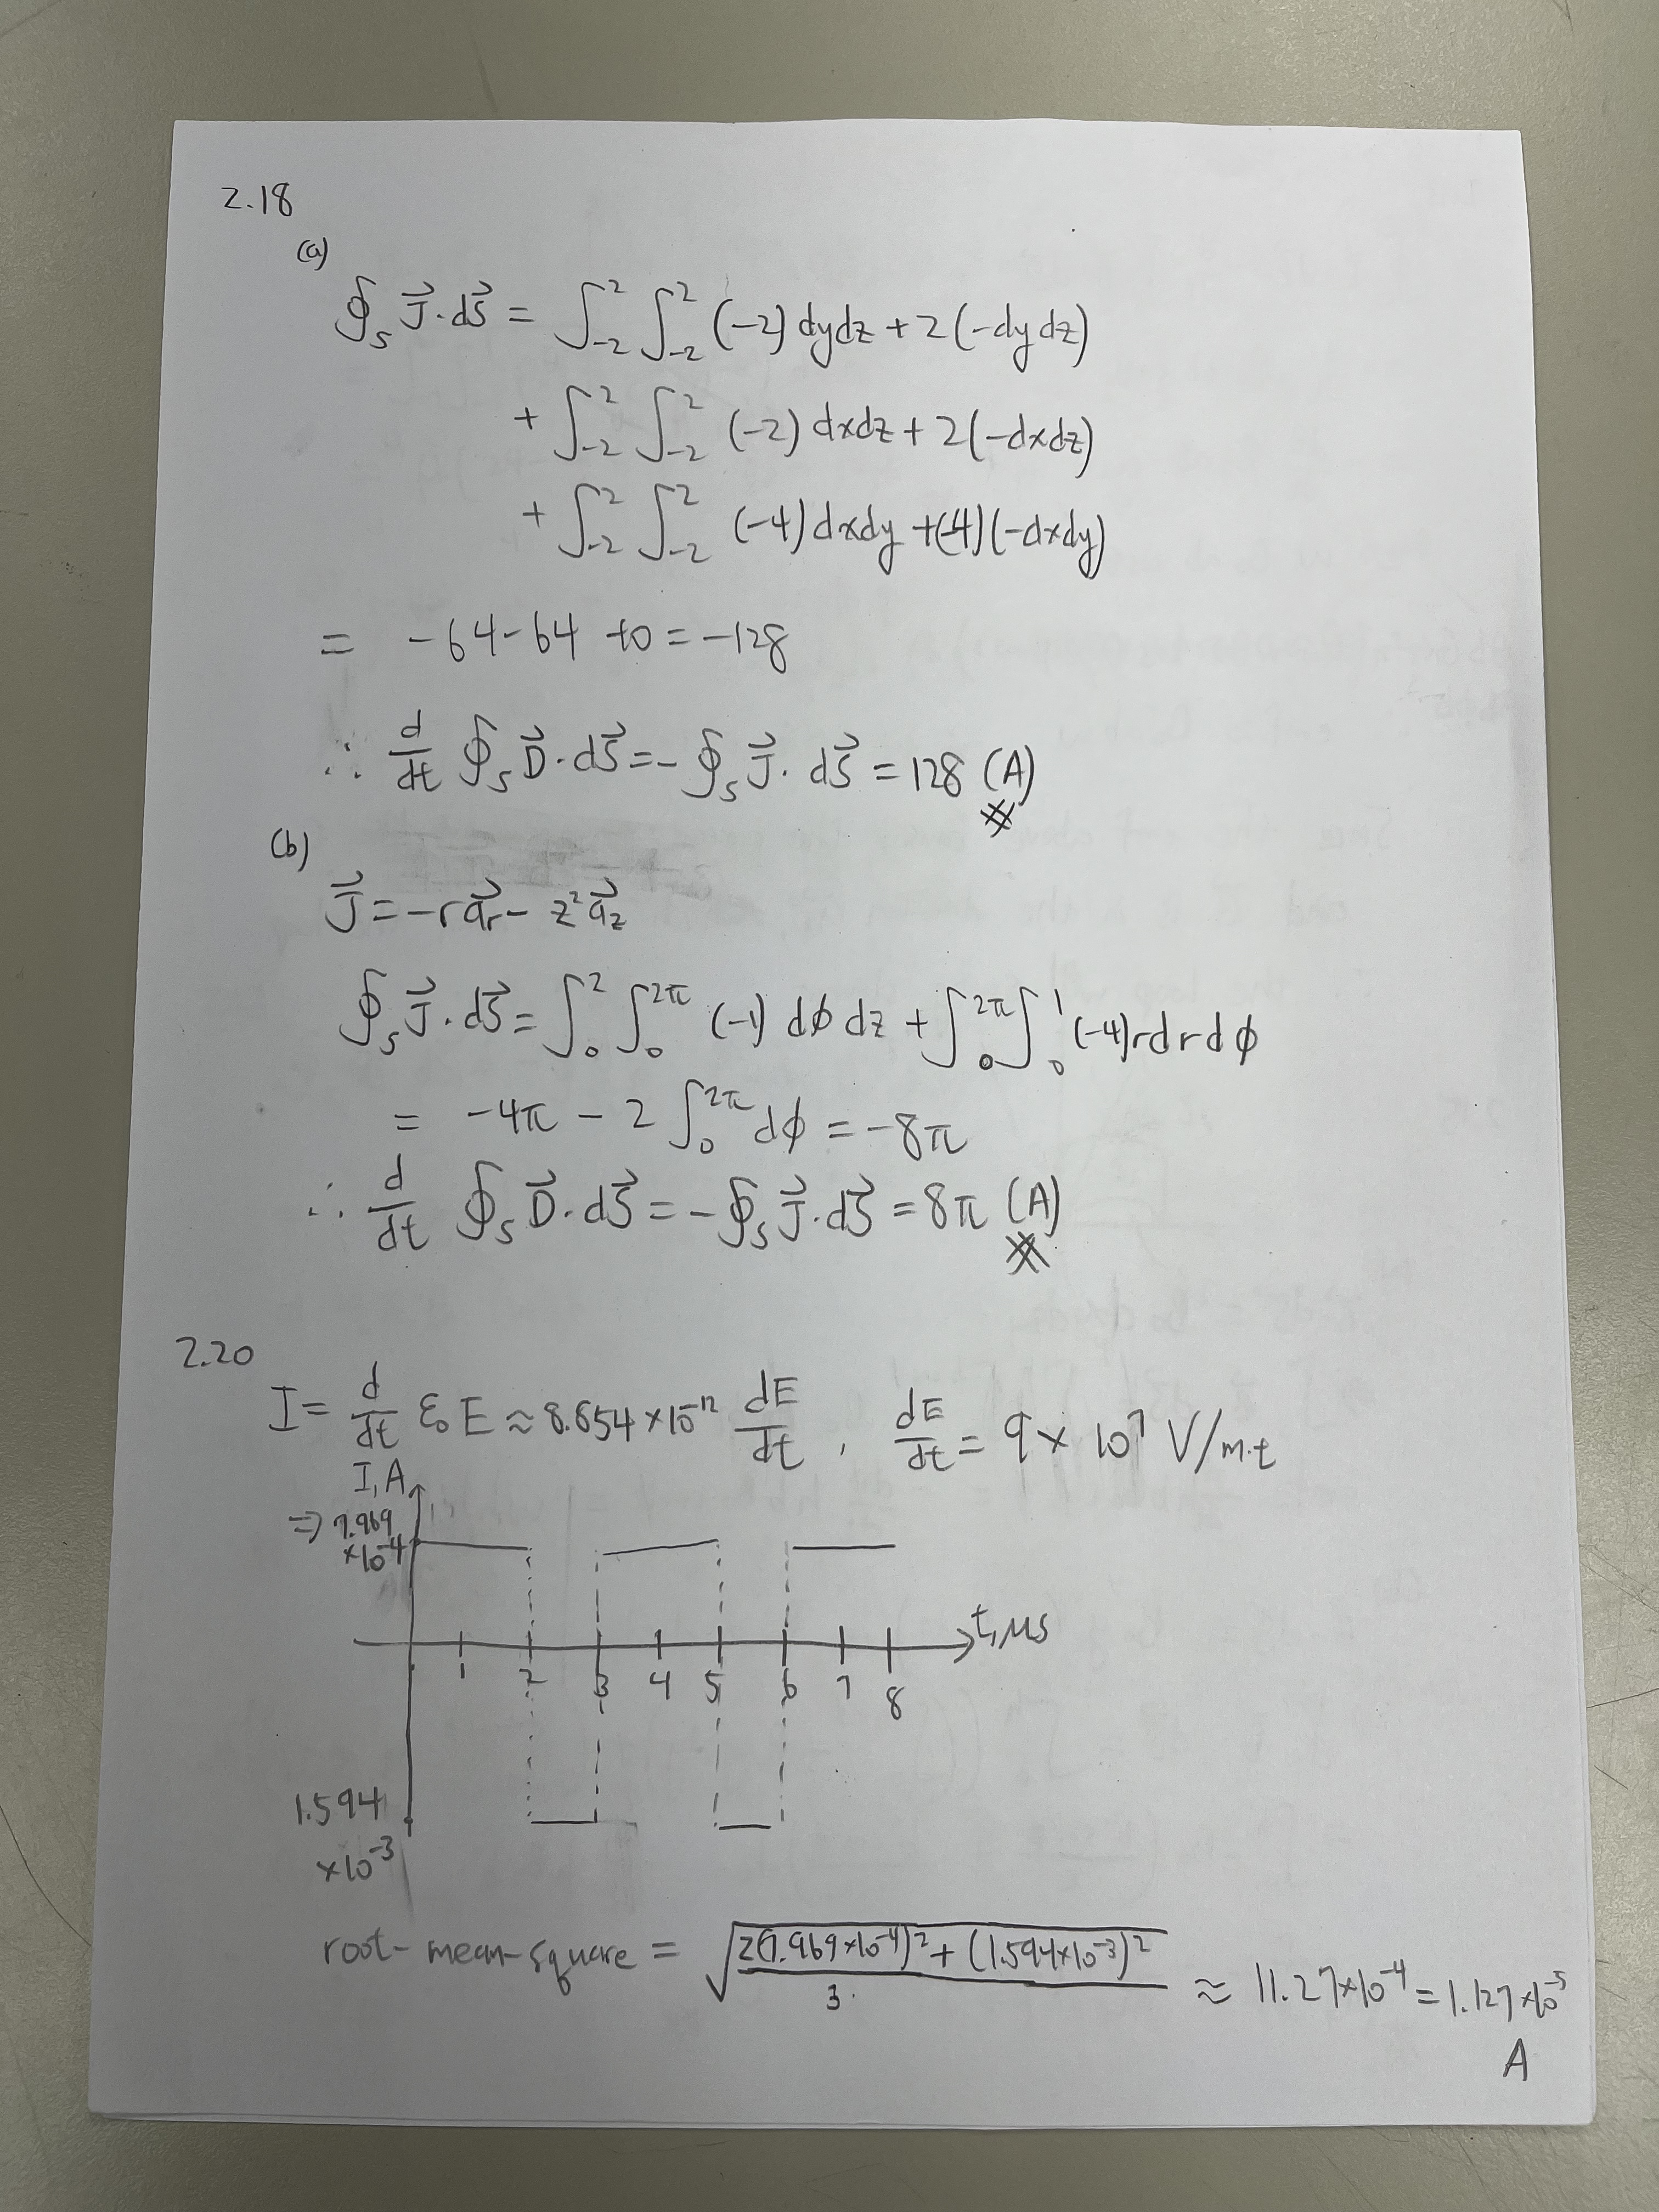 2.18
(a)
∮_S J⃗·dS⃗ = ∫_{-2}^{2} ∫_{-2}^{2} (-2) dydz + 2(-dydz)
+ ∫_{-2}^{2} ∫_{-2}^{2} (-2) dxdz + 2(-dxdz)
+ ∫_{-2}^{2} ∫_{-2}^{2} (-4) dxdy + (-4)(-dxdy)
= -64 - 64 + 0 = -128
∴ d/dt ∮_S D⃗·dS⃗ = - ∮_S J⃗·dS⃗ = 128 (A)
(b)
J⃗ = -r a⃗_r - z² a⃗_z
∮_S J⃗·dS⃗ = ∫_0^2 ∫_0^{2π} (-1) dϕ dz + ∫_0^{2π} ∫_0^1 (-4) r dr dϕ
= -4π - 2 ∫_0^{2π} dϕ = -8π
∴ d/dt ∮_S D⃗·dS⃗ = - ∮_S J⃗·dS⃗ = 8π (A)
2.20
I = d/dt ε₀ E ≈ 8.854 × 10⁻¹² dE/dt , dE/dt = 9 × 10⁷ V/m·t
I, A
⇒ 7.969
×10⁻⁴
t, μs
1 2 3 4 5 6 7 8
1.594
×10⁻³
root-mean-square = √((2(7.969×10⁻⁴)² + (1.594×10⁻³)²)/3) ≈ 11.27×10⁻⁴ = 1.127×10⁻⁵
A